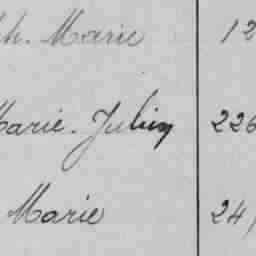 ph. Marie 12
Marie. Julien 226
Marie 24